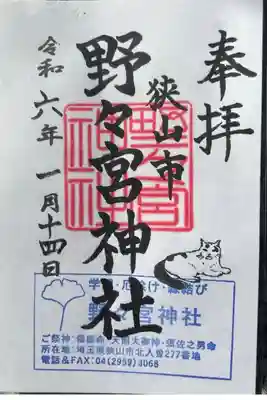 奉拝
狭山市
野々宮神社
令和六年一月十四日
学問・厄除け・縁結び
野々宮神社
ご祭神:倭姫命・天照大御神・須佐之男命
所在地:埼玉県狭山市北入曽277番地
電話&FAX:04(2959)8068